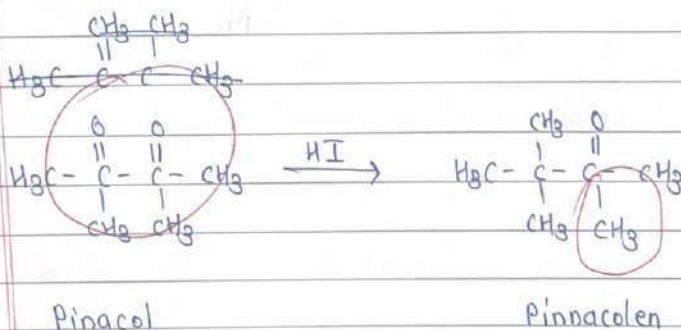 CH3 CH3
|| |
H3C - C - C - CH3
O O
|| ||
H3C - C - C - CH3
| |
CH3 CH3
HI
CH3 O
| ||
H3C - C - C - CH3
| |
CH3 CH3
Pinacol Pinnacolen